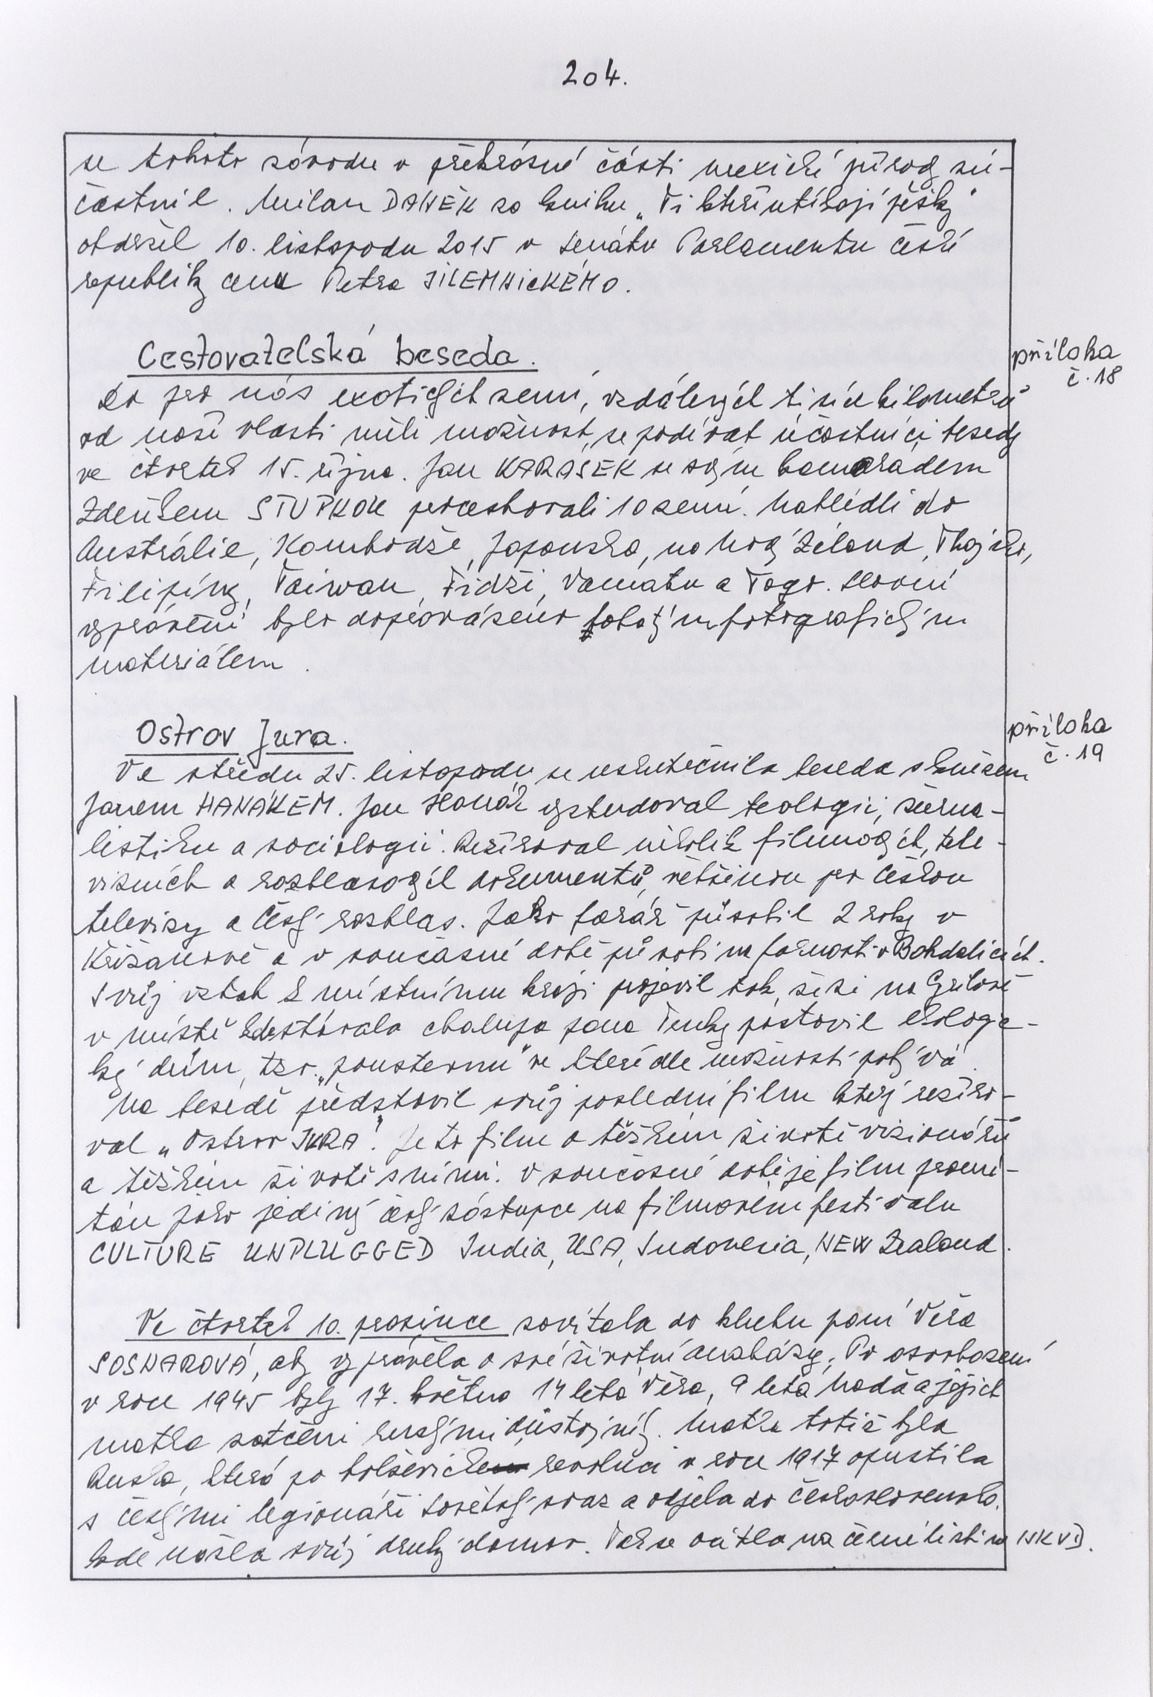 204.
se tohoto závodu v překrásné části mexické přírody zú-
častnil. Milan DANĚK za knihu „Ti kteří utíkají pěšky"
obdržel 10. listopadu 2015 v senátu Parlamentu české
republiky cenu Petra JILEMNICKÉHO.
Cestovatelská beseda.
příloha
č. 18
Do pro nás exotických zemí, vzdálených tisíce kilometrů
od naší vlasti měli možnost se podívat účastníci besedy
ve čtvrtek 15. října. Jan KARÁSEK se svým kamarádem
Zdeňkem STUPKOU procestovali 10 zemí. Nahlédli do
Austrálie, Kambodže, Japonska, na Nový Zéland, Thajsko,
Filipíny, Taiwan, Fidži, Vanuatu a Togo. Slovní
vyprávění bylo doprovázeno bohatým fotografickým
materiálem.
Ostrov Jura.
příloha
č. 19
Ve středu 25. listopadu se uskutečnila beseda s knězem
Janem HANÁKEM. Jan Hanák vystudoval teologii, žurna-
listiku a sociologii. Režíroval několik filmových, tele-
vizních a rozhlasových dokumentů, většinou pro českou
televizy a český rozhlas. Jako farář působil 2 roky v
Křižanově a v současné době působí na farnosti v Bohdalicích.
Svůj vztah k místnímu kraji projevil tak, že si na
v místě kde stávala chalupa pana postavil ekologic-
ký dům, tzv. „poustevnu" ve které dle možností pobývá.
Na besedě představil svůj poslední film který režíro-
val „Ostrov JURA". Je to film o těžkém životě vizionářů
a těžkém životě s nimi. V současné době je film promí-
tán jako jediný český zástupce na filmovém festivalu
CULTURE UNPLUGGED India, USA, Indonesia, NEW Zealand.
Ve čtvrtek 10. prosince zavítala do klubu paní Věra
SOSNAROVÁ, aby vyprávěla o své životní anabázy. Po osvobození
v roce 1945 byly 17. května 14 letá Věra, 9 letá Naďa a jejich
matka zatčeni ruskými důstojníky. Matka totiž byla
Ruska, která po bolševické revoluci v roce 1917 opustila
s českými legionáři Sovětský svaz a odjela do Československa,
kde našla svůj druhý domov. Tak se ocitla na černé listině NKVD.